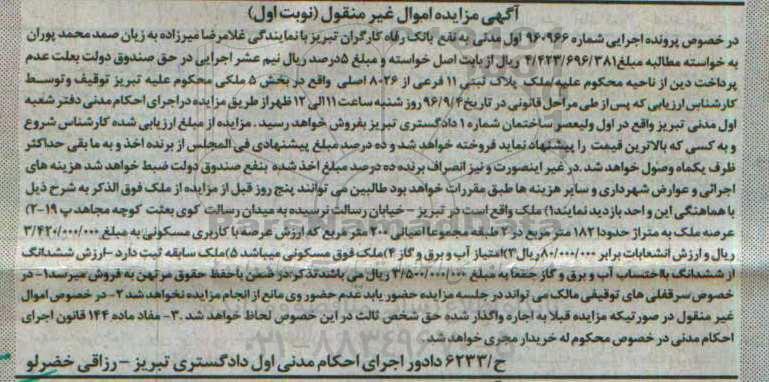 آگهی مزایده اموال غیر منقول (نوبت اول)
در خصوص پرونده اجرایی شماره ۹۶۰۹۶۶ اول مدنی به نفع بانک رفاه کارگران تبریز با نمایندگی غلامرضا میرزاده به زیان صمد محمد پوران
به خواسته مطالبه مبلغ ۴/۴۲۳/۶۹۶/۳۸۱ ریال از بابت اصل خواسته و مبلغ ۵درصد ریال نیم عشر اجرایی در حق صندوق دولت بعلت عدم
پرداخت دین از ناحیه محکوم علیه/ملک پلاک ثبتی ۱۱ فرعی از ۸۰۲۶ اصلی واقع در بخش ۵ ملکی محکوم علیه تبریز توقیف و توسط
کارشناس ارزیابی که پس از طی مراحل قانونی در تاریخ ۹۶/۹/۴ روز شنبه ساعت ۱۱الی ۱۲ ظهر از طریق مزایده در اجرای احکام مدنی دفتر شعبه
اول مدنی تبریز واقع در اول ولیعصر ساختمان شماره ۱ دادگستری تبریز بفروش خواهد رسید . مزایده از مبلغ ارزیابی شده کارشناس شروع
و به کسی که بالاترین قیمت را پیشنهاد نماید فروخته خواهد شد و ده درصد مبلغ پیشنهادی فی المجلس از برنده اخذ و به ما بقی حداکثر
ظرف یکماه وصول خواهد شد .در غیر اینصورت و نیز انصراف برنده ده درصد مبلغ اخذ شده بنفع صندوق دولت ضبط خواهد شد هزینه های
اجرائی و عوارض شهرداری و سایر هزینه ها طبق مقررات خواهد بود طالبین می توانند پنج روز قبل از مزایده از ملک فوق الذکر به شرح ذیل
با هماهنگی این واحد بازدید نمایند۱) ملک واقع است در تبریز – خیابان رسالت نرسیده به میدان رسالت کوی بعثت کوچه مجاهد پ ۱۹-۲)
عرصه ملک به متراژ حدودا ۱۸۲ متر مربع در ۲ طبقه مجموعا اعیانی ۲۰۰ متر مربع که ارزش عرصه با کاربری مسکونی به مبلغ ۳/۴۲۰/۰۰۰/۰۰۰
ریال و ارزش انشعابات برابر ۸۰/۰۰۰/۰۰۰ریال۳)امتیاز آب و برق و گاز ۴)ملک فوق مسکونی میباشد ۵)ملک سابقه ثبت دارد –ارزش ششدانگ
از ششدانگ بااحتساب آب و برق و گاز جمعا به مبلغ ۳/۵۰۰/۰۰۰/۰۰۰ ریال می باشدتذکر:در ضمن باحفظ حقوق مرتهن به فروش میرسد۱- در
خصوص سرقفلی های توقیفی مالک می تواند در جلسه مزایده حضور یابد عدم حضور وی مانع از انجام مزایده نخواهد شد ۲- در خصوص اموال
غیر منقول در صورتیکه مزایده قبلا به اجاره واگذار شده حق شخص ثالث در این خصوص لحاظ خواهد شد .۳- مفاد ماده ۱۴۴ قانون اجرای
احکام مدنی در خصوص محکوم له خریدار مجری خواهد شد.
ح/۶۲۳۳ دادور اجرای احکام مدنی اول دادگستری تبریز – رزاقی خضرلو